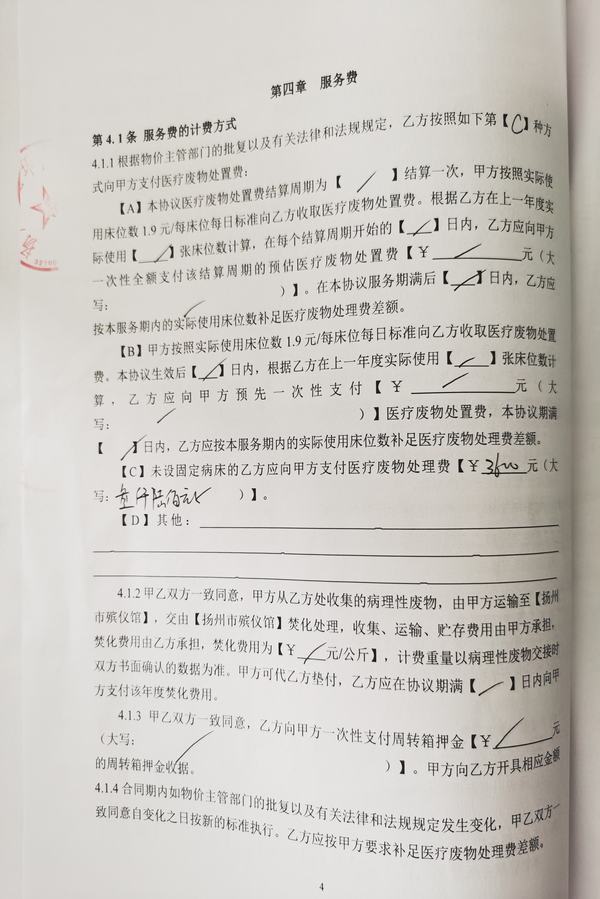 第四章 服务费
第4.1条 服务费的计费方式
4.1.1根据物价主管部门的批复以及有关法律和法规规定，乙方按照如下第【C】种方
式向甲方支付医疗废物处置费：
【A】本协议医疗废物处置费结算周期为【 / 】结算一次，甲方按照实际使
用床位数1.9元/每床位每日标准向乙方收取医疗废物处置费。根据乙方在上一年度实
际使用【 / 】张床位数计算，在每个结算周期开始的【 / 】日内，乙方应向甲方
一次性全额支付该结算周期的预估医疗废物处置费【￥ / 元（大
写： / ）】。在本协议服务期满后【 / 】日内，乙方应
按本服务期内的实际使用床位数补足医疗废物处理费差额。
【B】甲方按照实际使用床位数1.9元/每床位每日标准向乙方收取医疗废物处置
费。本协议生效后【 / 】日内，根据乙方在上一年度实际使用【 / 】张床位数计
算，乙方应向甲方预先一次性支付【￥ / 元（大
写： / ）】医疗废物处置费，本协议期满
【 / 】日内，乙方应按本服务期内的实际使用床位数补足医疗废物处理费差额。
【C】未设固定病床的乙方应向甲方支付医疗废物处理费【￥3600元（大
写：叁仟陆佰元 ）】。
【D】其他：
4.1.2甲乙双方一致同意，甲方从乙方处收集的病理性废物，由甲方运输至【扬州
市殡仪馆】，交由【扬州市殡仪馆】焚化处理，收集、运输、贮存费用由甲方承担，
焚化费用由乙方承担，焚化费用为【￥ / 元/公斤】，计费重量以病理性废物交接时
双方书面确认的数据为准。甲方可代乙方垫付，乙方应在协议期满【 / 】日内向甲
方支付该年度焚化费用。
4.1.3 甲乙双方一致同意，乙方向甲方一次性支付周转箱押金【￥ / 元
（大写： / ）】。甲方向乙方开具相应金额
的周转箱押金收据。
4.1.4合同期内如物价主管部门的批复以及有关法律和法规规定发生变化，甲乙双方一
致同意自变化之日按新的标准执行。乙方应按甲方要求补足医疗废物处理费差额。
4